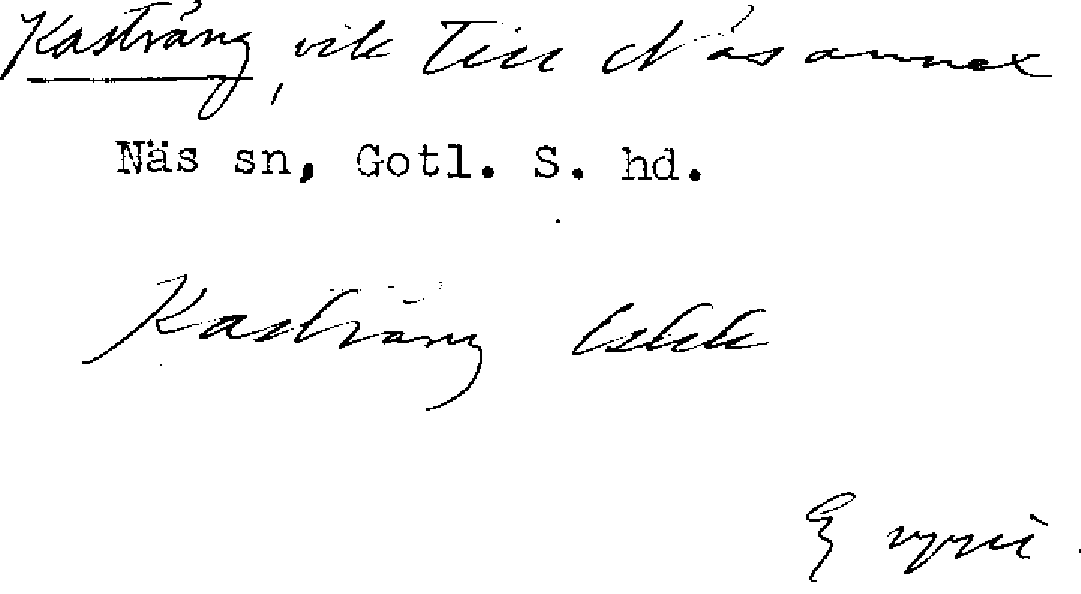 Kasträng, vik till Näs annex
Näs sn, Gotl. S. hd.
Kasträng